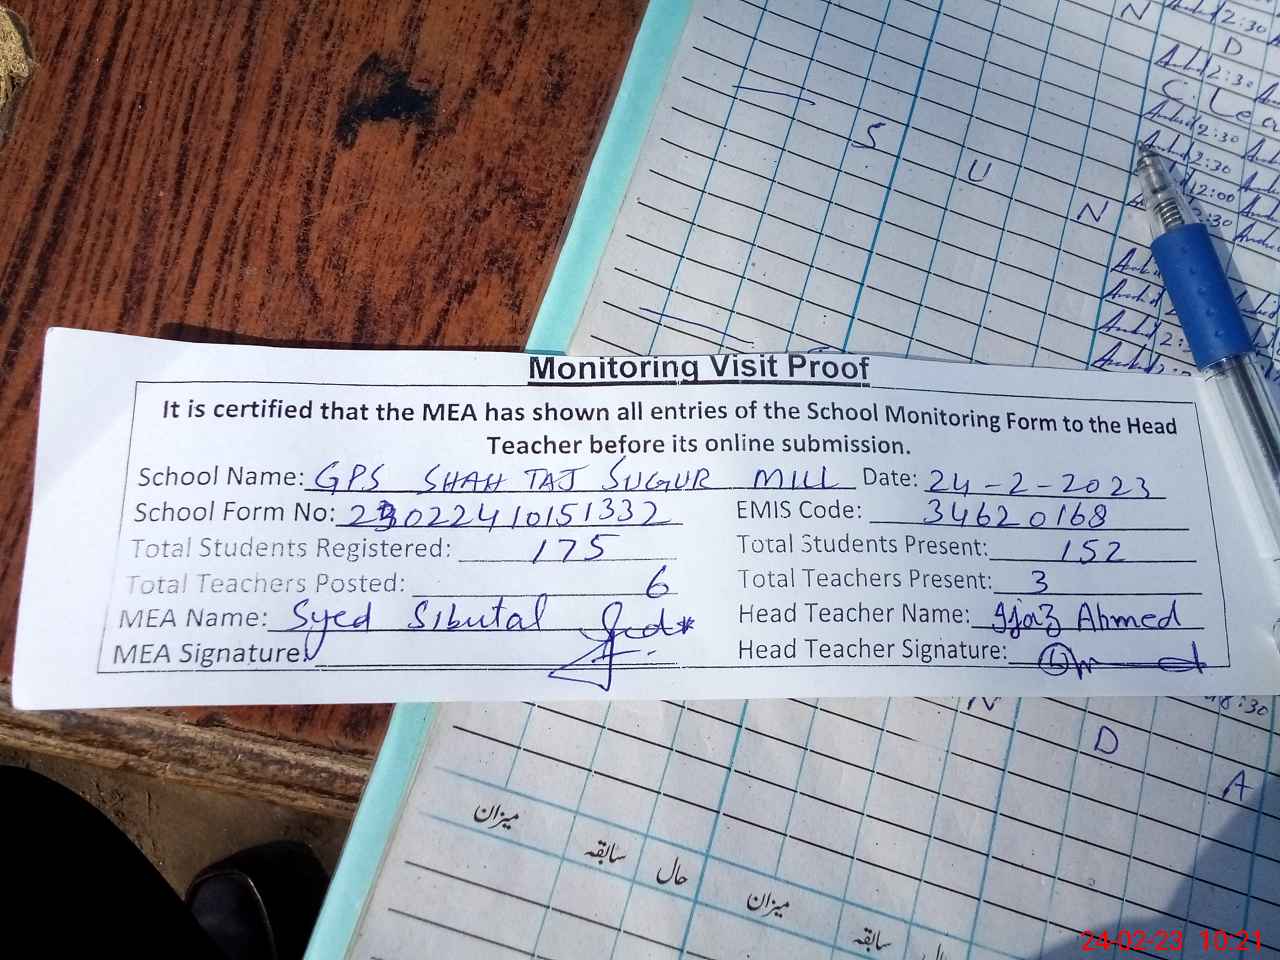 N
2:30
D
2:30
2:30
S
2:30
U
12:00
N
2:30
Monitoring Visit Proof
It is certified that the MEA has shown all entries of the School Monitoring Form to the Head
Teacher before its online submission.
School Name: GPS SHAH TAJ SUGUR MILL Date: 24-2-2023
School Form No: 23022410151332 EMIS Code: 34620168
Total Students Registered: 175 Total Students Present: 152
Total Teachers Posted: 6 Total Teachers Present: 3
MEA Name: Syed Sibutal Head Teacher Name: Ijaz Ahmed
MEA Signature: Head Teacher Signature:
N
8:30
D
A
میزان
سابقہ
حال
میزان
سابقہ
24-02-23 10:21